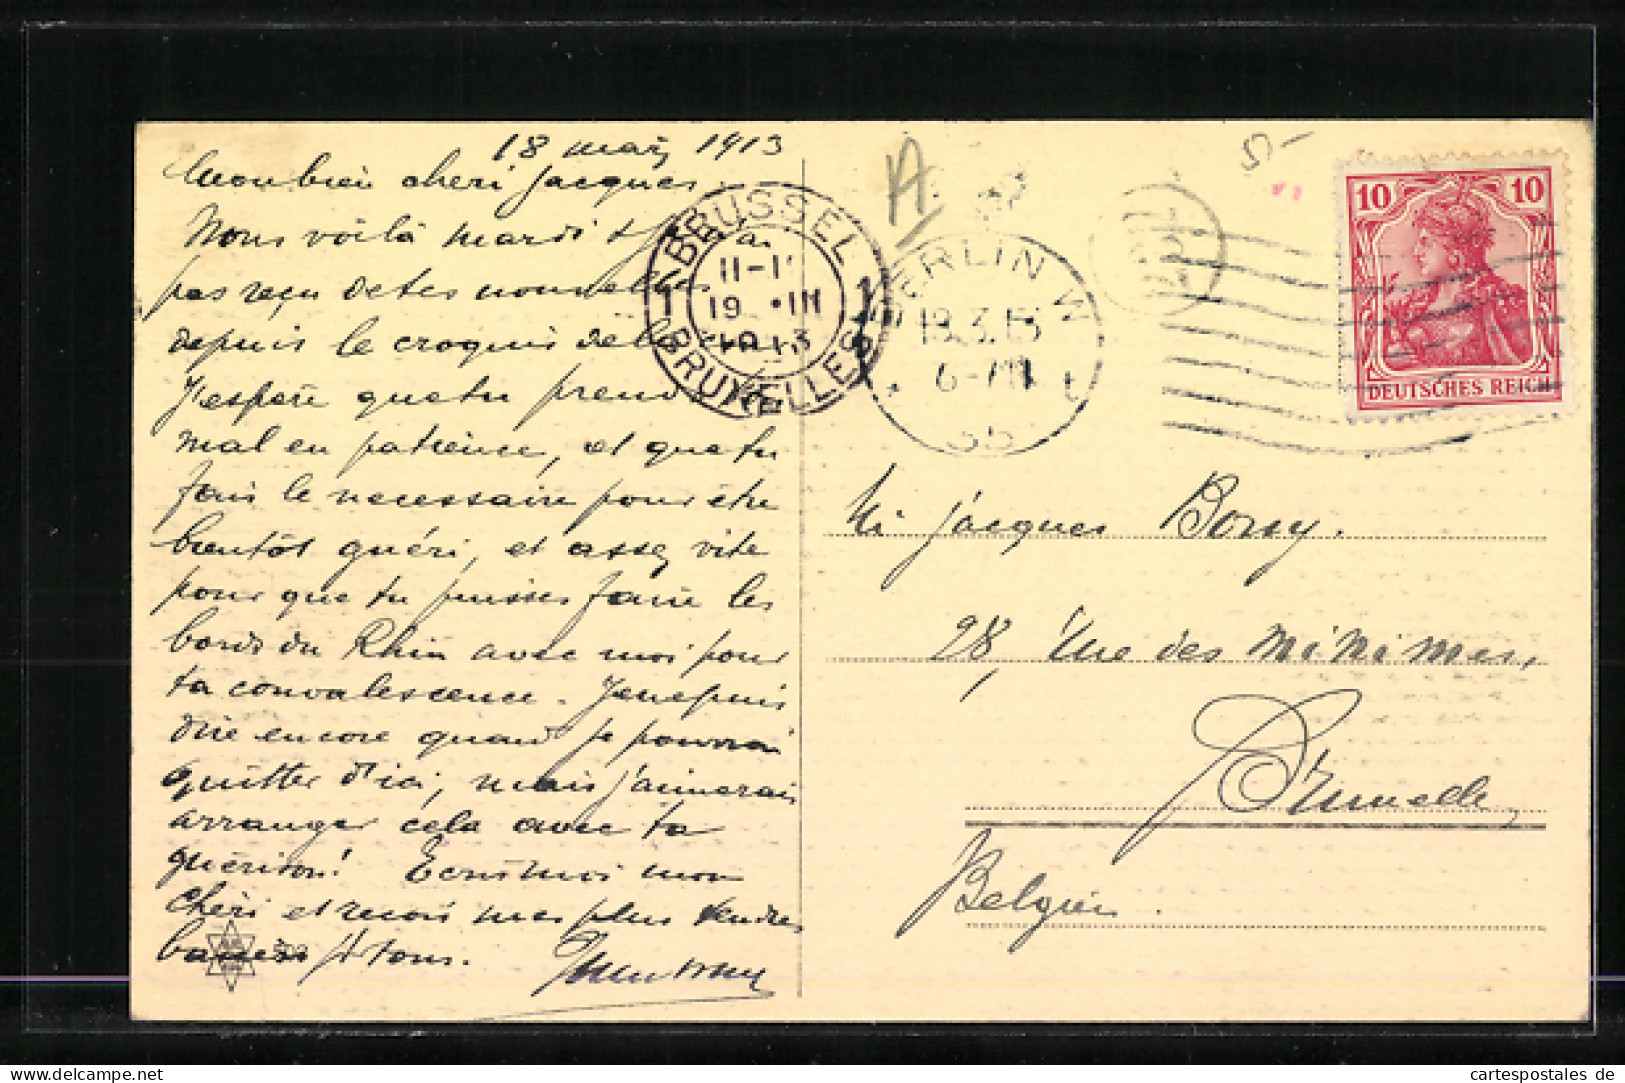 18 mars 1913
Mon bien cheri Jacques.
Nous voilà mardi et
pas reçu de tes nouvelles
depuis le croquis de la
J'espère que tu prend ton
mal en patience, et que tu
fais le necessaire pour être
bientôt guéri, et assez vite
pour que tu puisses faire les
bords du Rhin avec moi pour
ta convalescence. Je ne puis
dire encore quand je pourrai
quitter d'ici, mais j'aimerais
arranger cela avec ta
guérison! Ecris moi mon
chéri et reçois mes plus tendres
baisers pr tous.
BRUSSEL
1 1
11-1
19 III
1913
BRUXELLES
A
BERLIN W
18.3.13
6-7N
* t
35
10 10
DEUTSCHES REICH
Jacques Borsy.
28, Rue des Minimes,
Bruxelles
Belgien.
cartespostales de
www.cartespostales.de